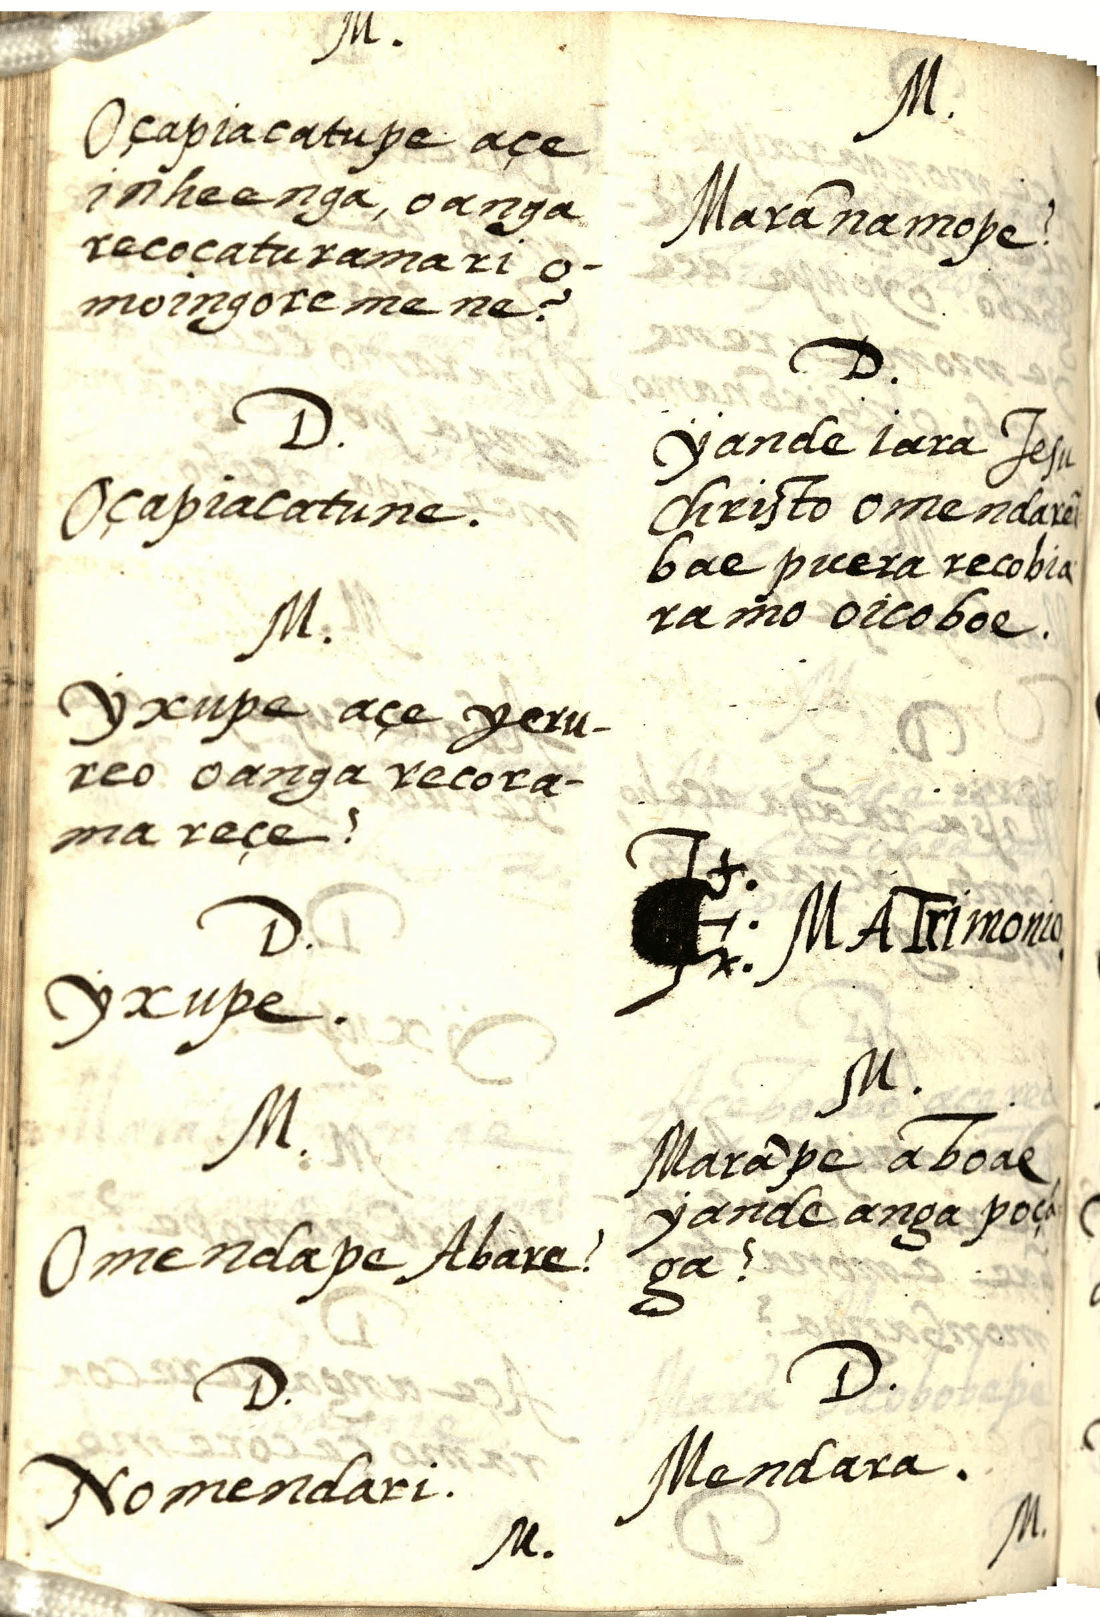 M.
Oçapiacatupe açe
inheenga, oanga
recocaturamari o-
moingoreme ne?
D.
Oçapiacatune.
M.
Yxupe açe yeru-
reo oanga recora-
ma reçe?
D.
Yxupe.
M.
Omendape Abare?
D.
Nomendari.
M.
M.
Marãnamope?
D.
Yande iara Jesu
Christo omendareĩ
bae puera recobia
ramo oicoboe.
MATrimonio
M.
Marãpe amboae
yande anga poçã
ga?
D.
Mendara.
M.